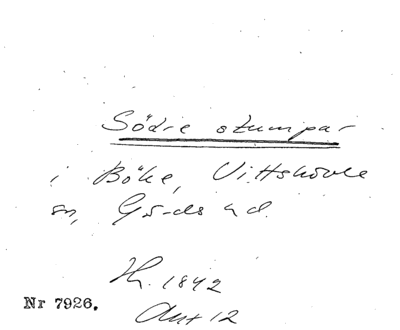 Södre stumpar
i Böke, Vittskövle
sn, Gärds hd.
Hr. 1842
Akt 12
Nr 7926.